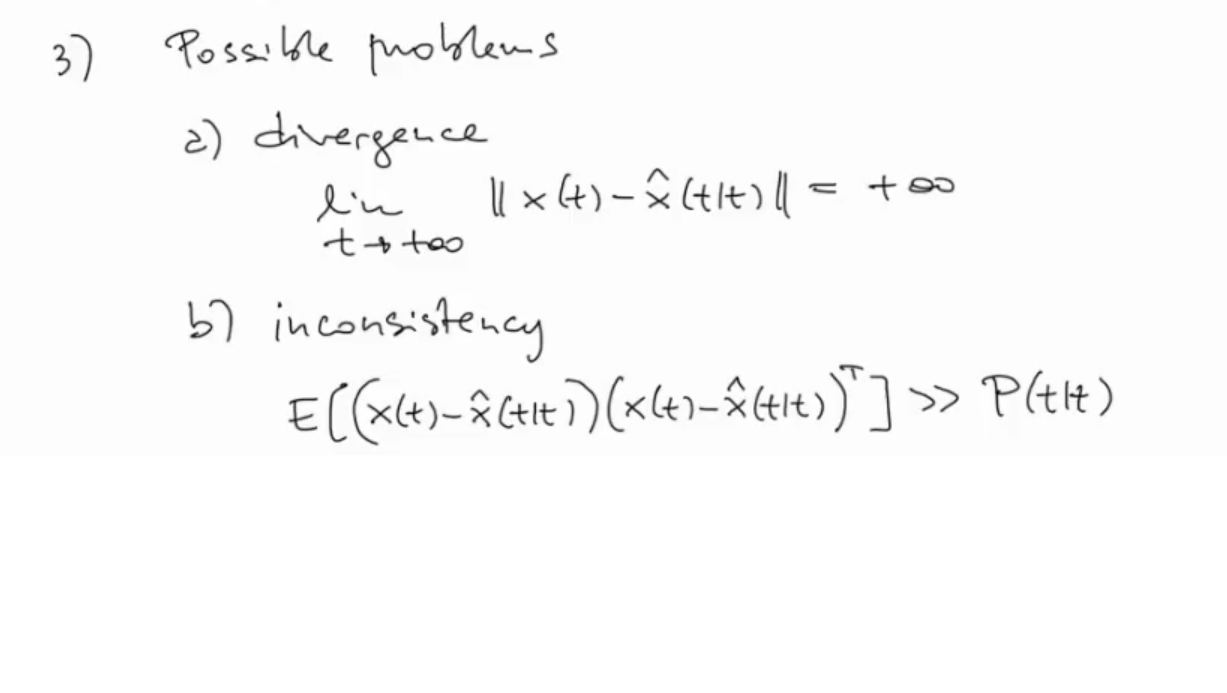 3) Possible problems
a) divergence
lim ‖ x(t) - x̂(t|t) ‖ = +∞
t→+∞
b) inconsistency
E[(x(t) - x̂(t|t))(x(t) - x̂(t|t))ᵀ] >> P(t|t)